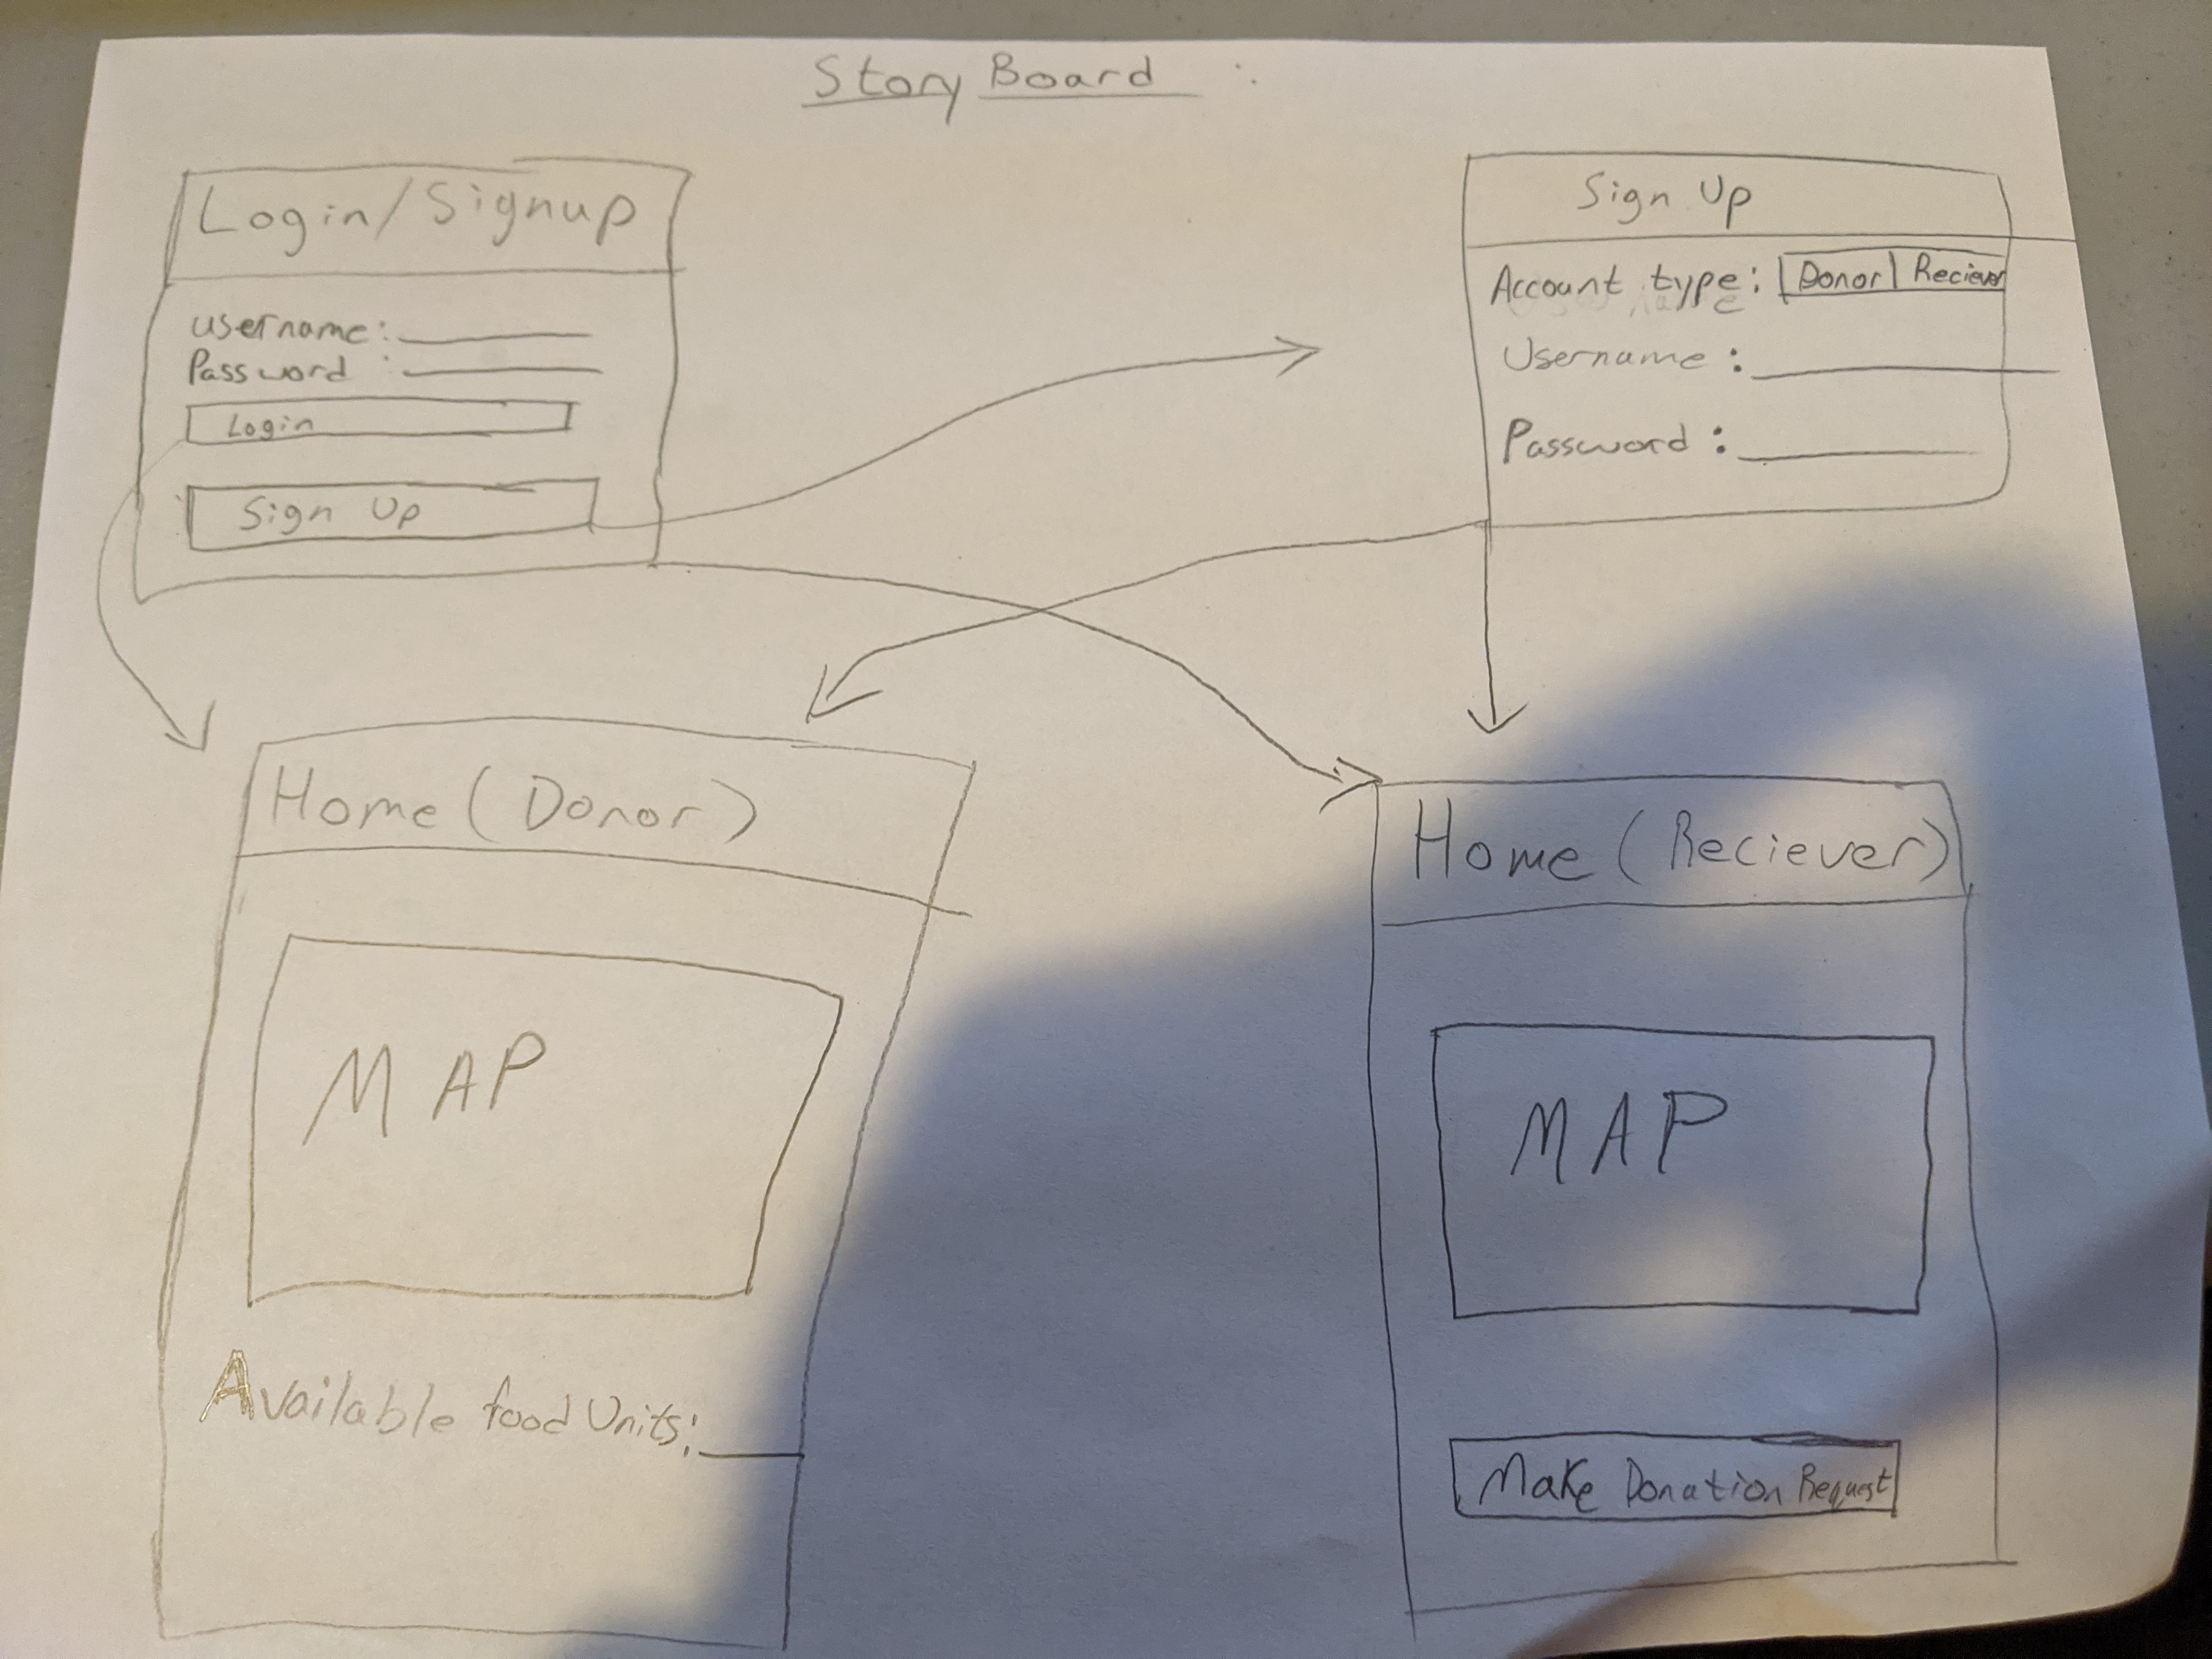 Story Board :
Login/Signup
username:
Password :
Login
Sign Up
Sign Up
Account type: Donor Reciever
Username :
Password :
Home (Donor)
MAP
Available food Units:
Home (Reciever)
MAP
Make Donation Request